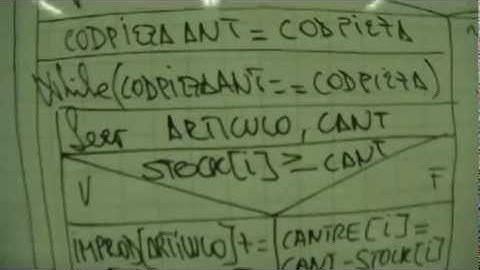 CODPIEZA ANT = CODPIEZA
While(CODPIEZAANT==CODPIEZA)
Leer ARTICULO, CANT
STOCK[i] >= CANT
V
F
IMPROD[ARTÍCULO] + =
CANTRE[i] =
CANT-STOCK[i]